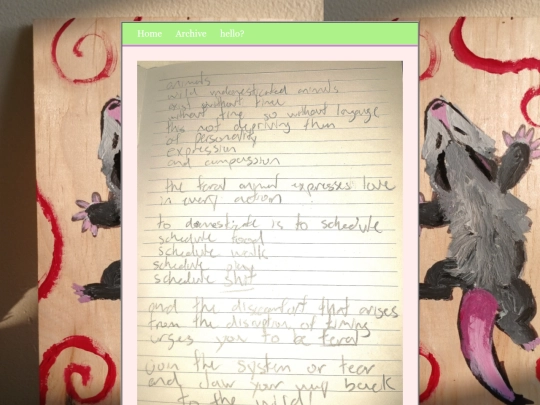 Home Archive hello?
animals
wild undomesticated animals
exist without time
without time so without language
this not depriving them
of personality
expression
and compassion
the feral animal expresses love
in every action
to domesticate is to schedule
schedule food
schedule walk
schedule play
schedule shit
and the discomfort that arises
from the disruption of timing
urges you to be feral
join the system or tear
and claw your way back
to the wild!